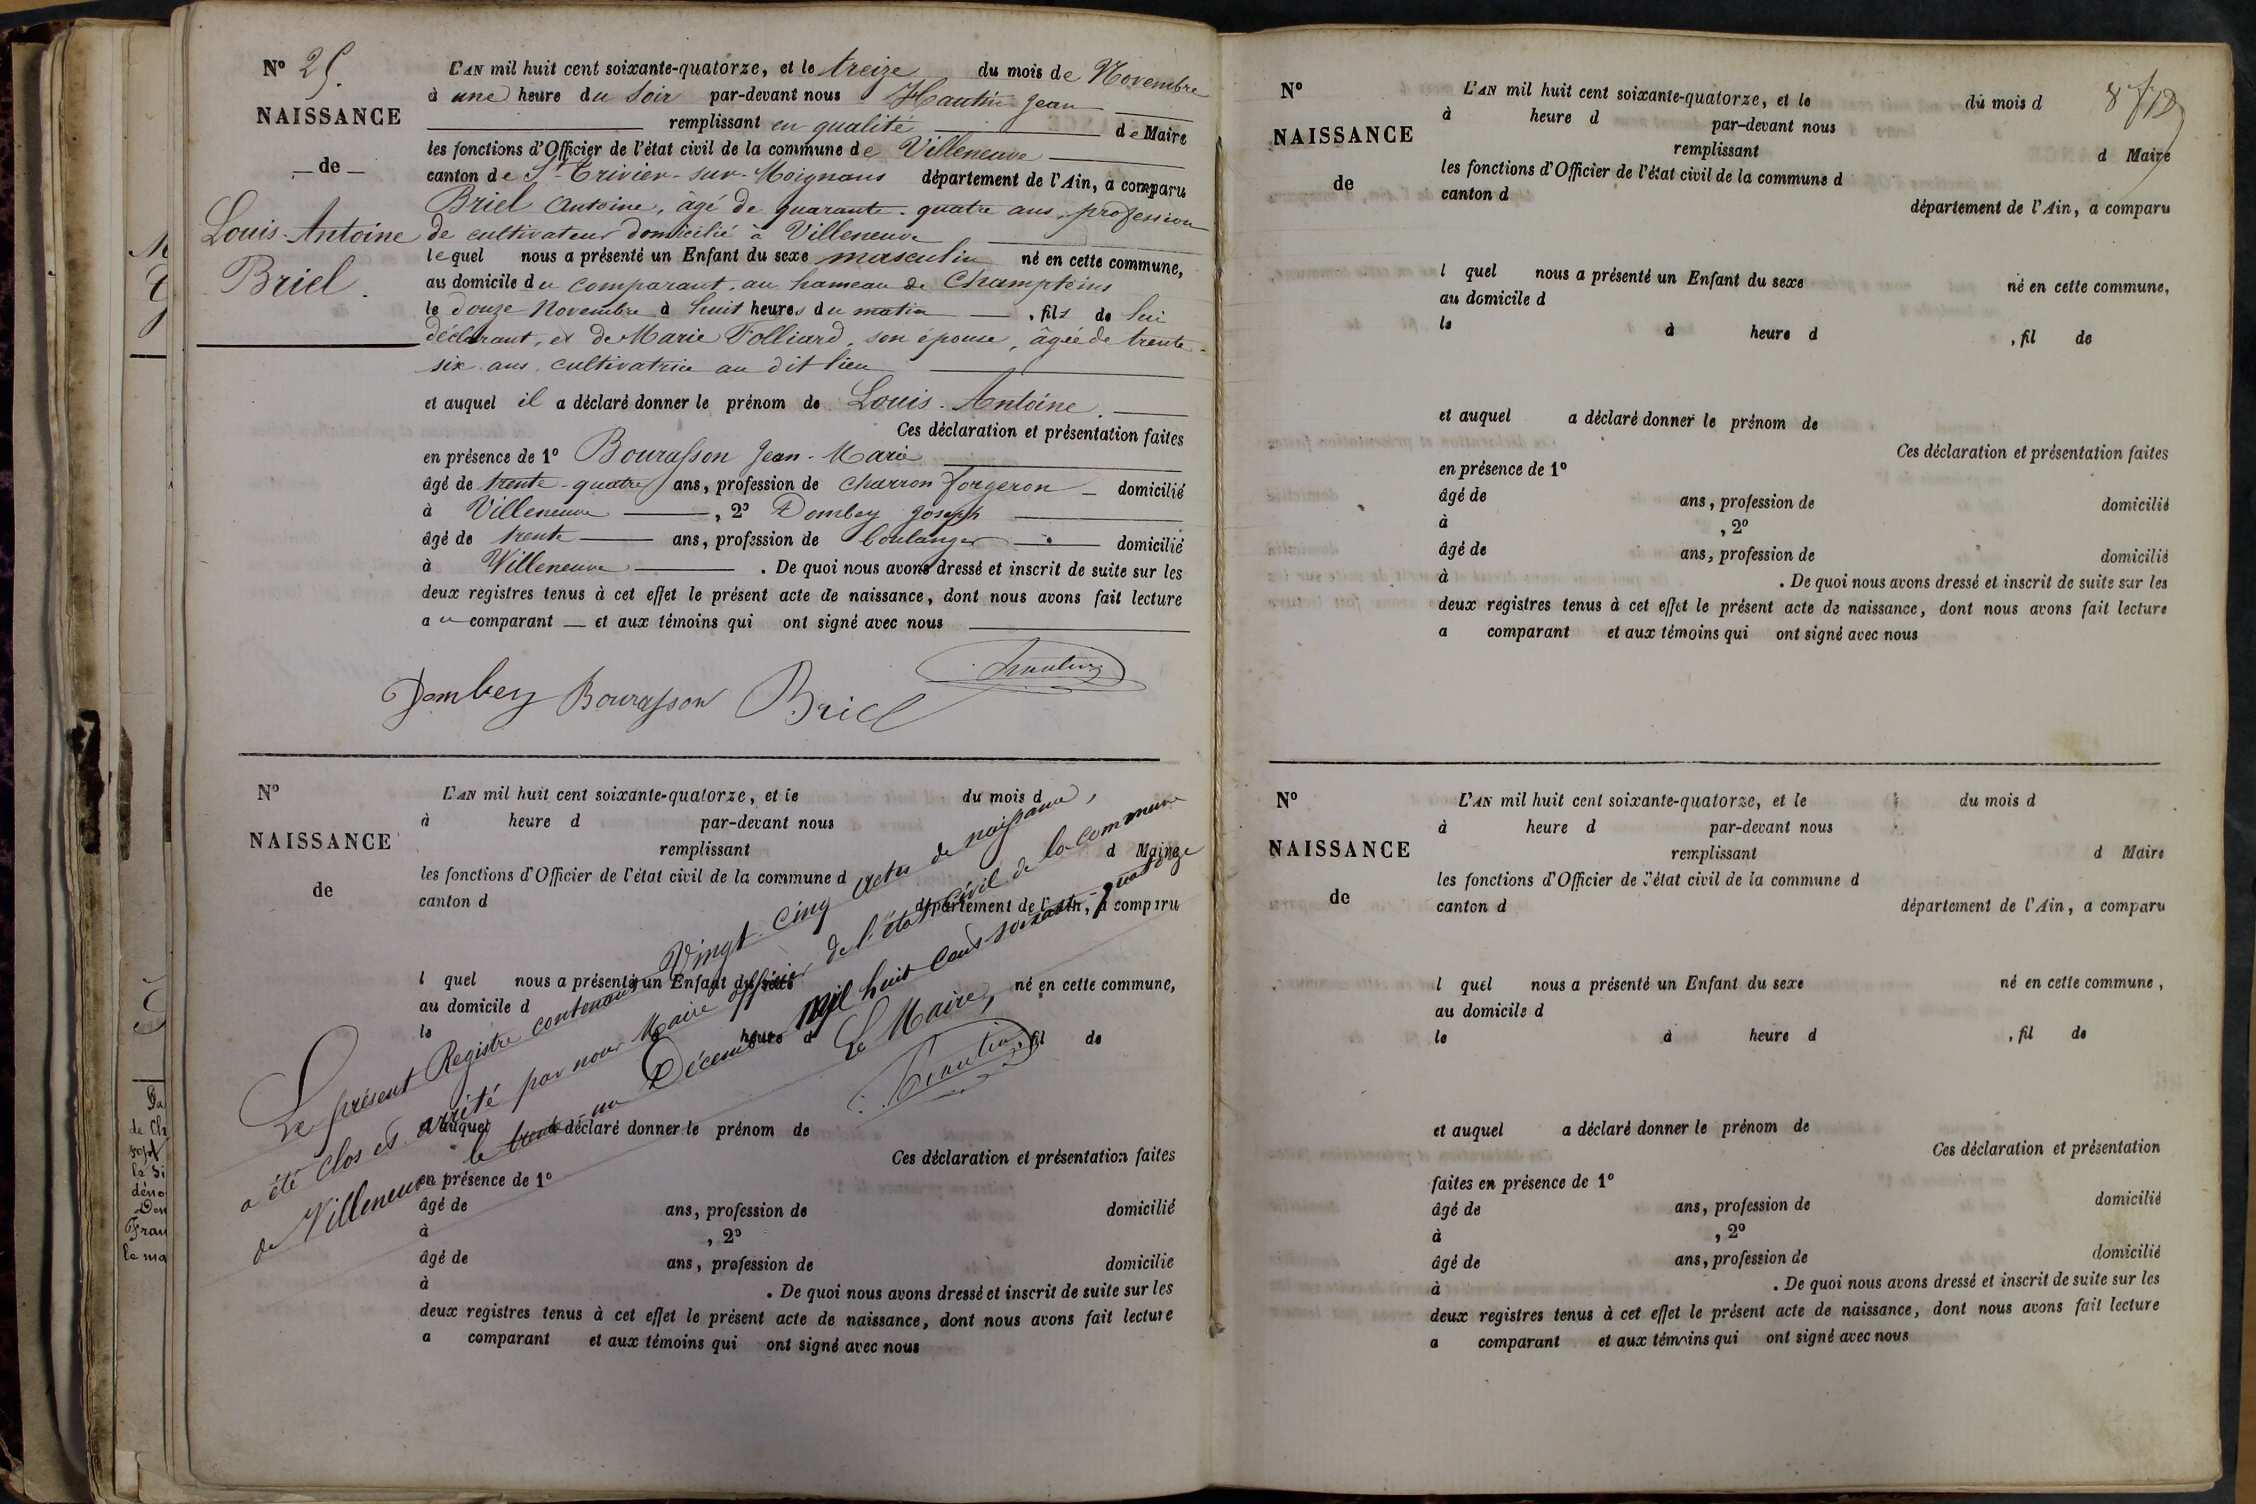 N° 25.
NAISSANCE
— de —
Louis-Antoine
Briel.
L'AN mil huit cent soixante-quatorze, et le treize du mois de Novembre
à une heure du soir par-devant nous Hautin Jean
remplissant en qualité de Maire
les fonctions d'Officier de l'état civil de la commune de Villeneuve
canton de St-Trivier-sur-Moignans département de l'Ain, a comparu
Briel Antoine, âgé de quarante-quatre ans, profession
de cultivateur domicilié à Villeneuve
lequel nous a présenté un Enfant du sexe masculin né en cette commune,
au domicile du comparant, au hameau de Champteins
le douze Novembre à huit heures du matin, fils de lui
déclarant, et de Marie Folliard, son épouse, âgée de trente-
six ans, cultivatrice au dit lieu
et auquel il a déclaré donner le prénom de Louis-Antoine.
Ces déclaration et présentation faites
en présence de 1° Bourasson Jean-Marie
âgé de trente-quatre ans, profession de charron forgeron — domicilié
à Villeneuve, 2° Dombey Joseph
âgé de trente ans, profession de boulanger domicilié
à Villeneuve. De quoi nous avons dressé et inscrit de suite sur les
deux registres tenus à cet effet le présent acte de naissance, dont nous avons fait lecture
au comparant — et aux témoins qui ont signé avec nous
Dombey Bourasson Briel Hautin
N°
NAISSANCE
de
L'AN mil huit cent soixante-quatorze, et le du mois d
à heure d par-devant nous
remplissant d Maire
les fonctions d'Officier de l'état civil de la commune d
canton d département de l'Ain, a comparu
l quel nous a présenté un Enfant du sexe né en cette commune,
au domicile d
le à heure d , fil de
et auquel a déclaré donner le prénom de
Ces déclaration et présentation faites
en présence de 1°
âgé de ans, profession de domicilié
à , 2°
âgé de ans, profession de domicilié
à . De quoi nous avons dressé et inscrit de suite sur les
deux registres tenus à cet effet le présent acte de naissance, dont nous avons fait lecture
a comparant et aux témoins qui ont signé avec nous
Le présent Registre contenant Vingt-cinq actes de naissance,
a été clos et arrêté par nous Maire officier de l'état civil de la commune
de Villeneuve le trente-un Décembre mil huit cent soixante-quatorze
Le Maire,
Hautin
N°
NAISSANCE
de
L'AN mil huit cent soixante-quatorze, et le du mois d
à heure d par-devant nous
remplissant d Maire
les fonctions d'Officier de l'état civil de la commune d
canton d
département de l'Ain, a comparu
l quel nous a présenté un Enfant du sexe né en cette commune,
au domicile d
le à heure d , fil de
et auquel a déclaré donner le prénom de
Ces déclaration et présentation faites
en présence de 1°
âgé de ans, profession de domicilié
à , 2°
âgé de ans, profession de domicilié
à . De quoi nous avons dressé et inscrit de suite sur les
deux registres tenus à cet effet le présent acte de naissance, dont nous avons fait lecture
a comparant et aux témoins qui ont signé avec nous
N°
NAISSANCE
de
L'AN mil huit cent soixante-quatorze, et le du mois d
à heure d par-devant nous
remplissant d Maire
les fonctions d'Officier de l'état civil de la commune d
canton d département de l'Ain, a comparu
l quel nous a présenté un Enfant du sexe né en cette commune,
au domicile d
le à heure d , fil de
et auquel a déclaré donner le prénom de
Ces déclaration et présentation
faites en présence de 1°
âgé de ans, profession de domicilié
à , 2°
âgé de ans, profession de domicilié
à . De quoi nous avons dressé et inscrit de suite sur les
deux registres tenus à cet effet le présent acte de naissance, dont nous avons fait lecture
a comparant et aux témoins qui ont signé avec nous